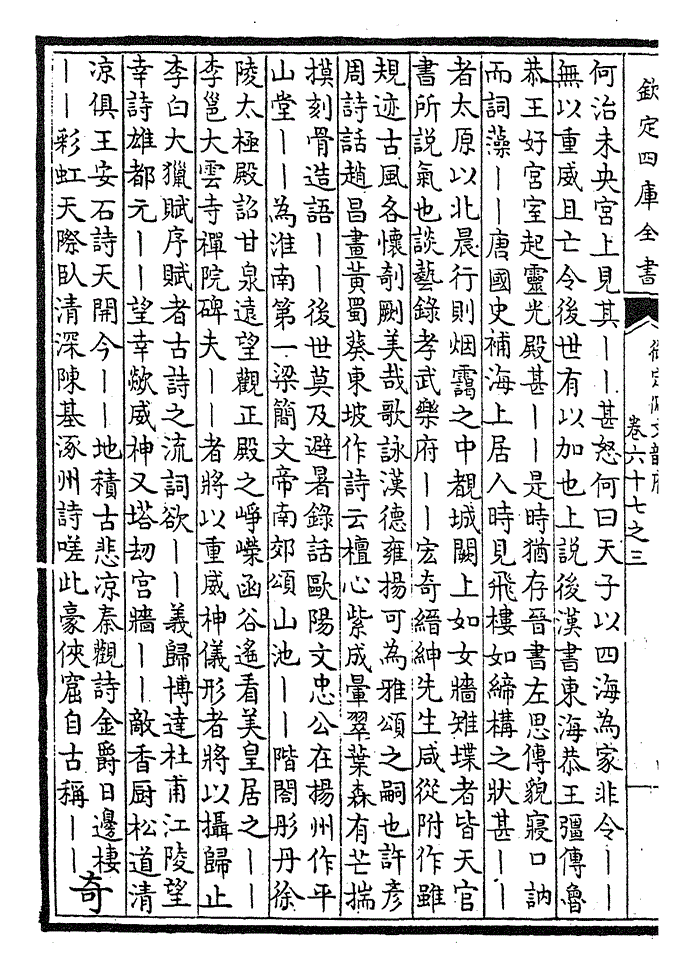 欽定四庫全書
御定佩文韻府
卷六十七之三
何治未央宮上見其丨丨甚怒何曰天子以四海為家非令丨丨
無以重威且亡令後世有以加也上説後漢書東海恭王彊傳魯
恭王好宮室起靈光殿甚丨丨是時猶存晉書左思傳貌寢口訥
而詞藻丨丨唐國史補海上居人時見飛樓如締構之狀甚丨丨
者太原以北晨行則烟靄之中覩城闕上如女牆雉堞者皆天官
書所説氣也談藝錄孝武樂府丨丨宏奇縉紳先生咸從附作雖
規迹古風各懷剞劂美哉歌詠漢德雍揚可為雅頌之嗣也許彥
周詩話趙昌畫黃蜀葵東坡作詩云檀心紫成暈翠葉森有芒揣
摸刻骨造語丨丨後世莫及避暑錄話歐陽文忠公在揚州作平
山堂丨丨為淮南第一梁簡文帝南郊頌山池丨丨階閣彤丹徐
陵太極殿詔甘泉遠望觀正殿之崢嶸函谷遙看美皇居之丨丨
李邕大雲寺禪院碑夫丨丨者將以重威神儀形者將以攝歸止
李白大獵賦序賦者古詩之流詞欲丨丨義歸博達杜甫江陵望
幸詩雄都元丨丨望幸歘威神又塔劫宮牆丨丨敵香厨松道清
凉俱王安石詩天開今丨丨地積古悲凉秦觀詩金爵日邊棲
丨丨彩虹天際臥清深陳基涿州詩嗟此豪俠窟自古稱丨丨奇